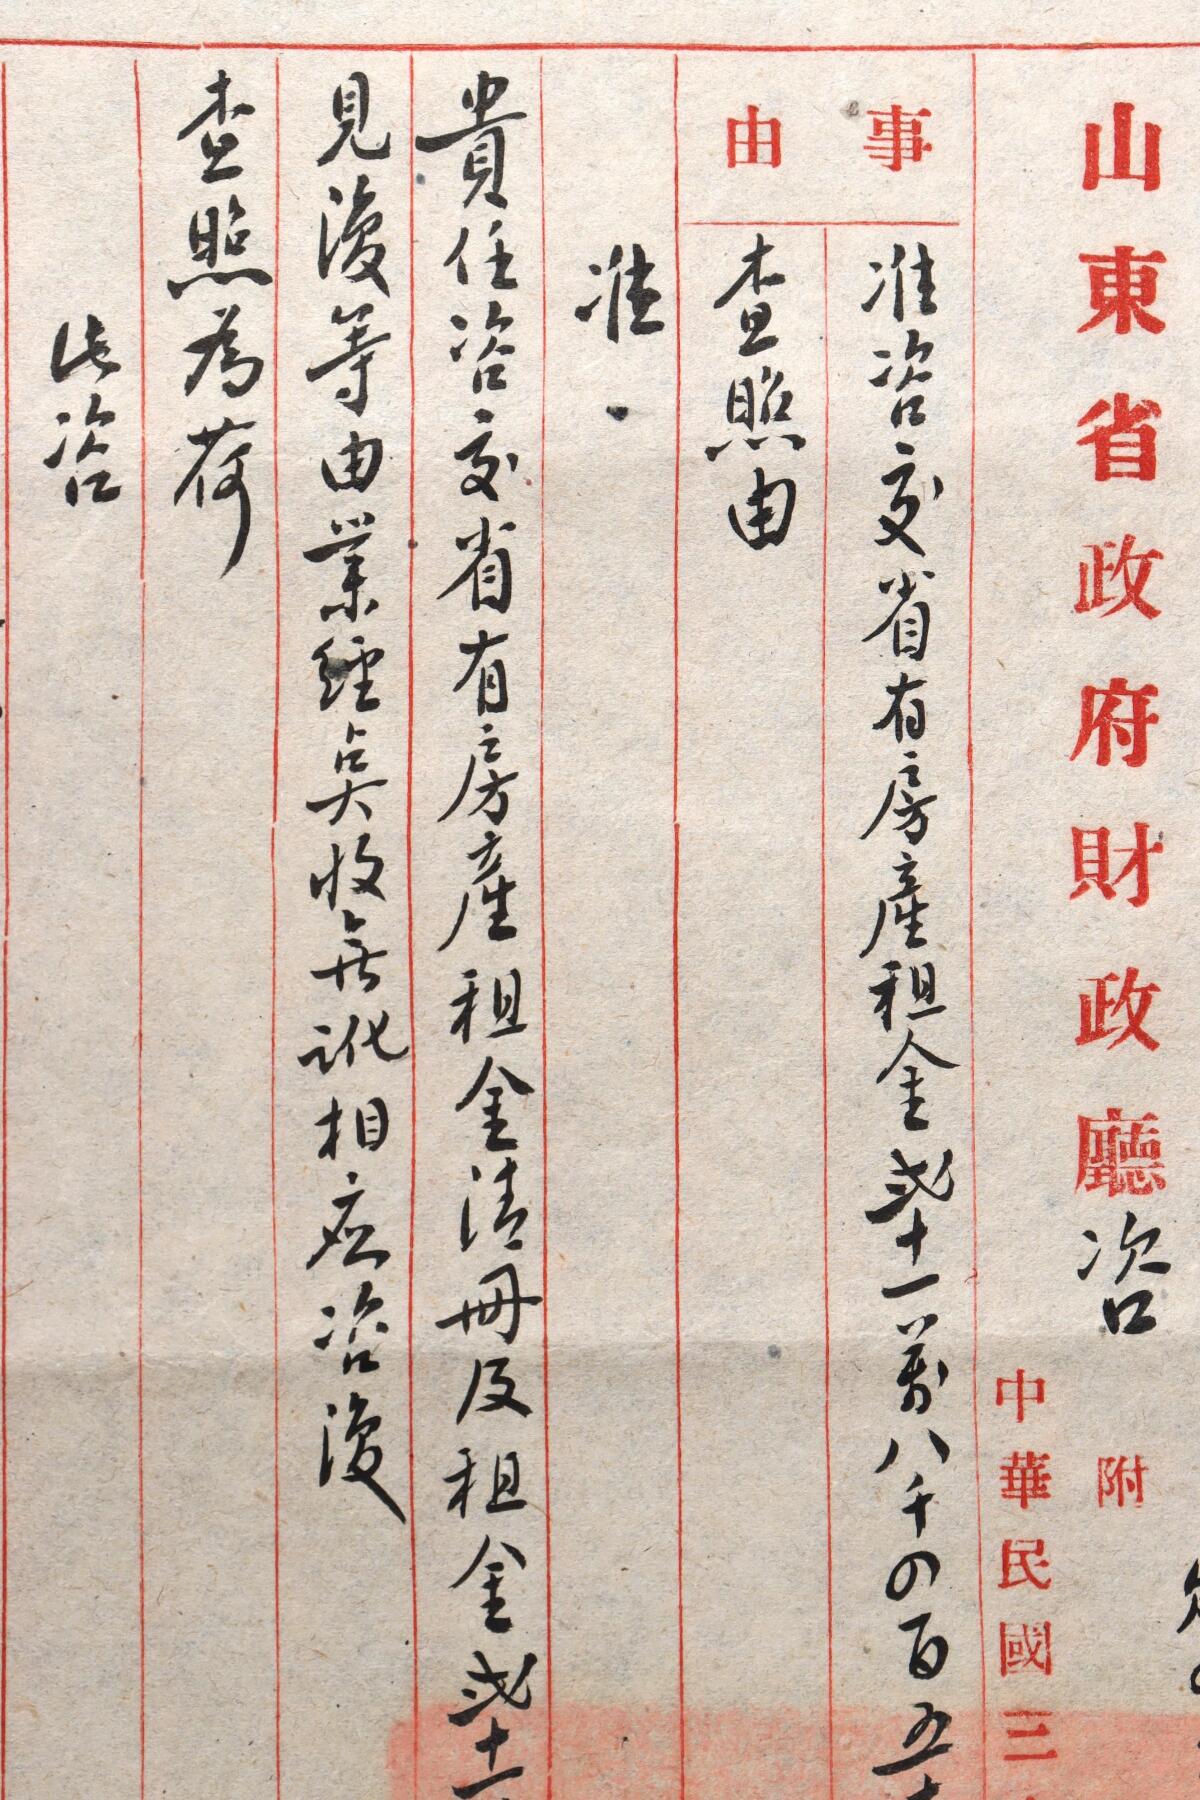 山東省政府財政廳咨
附
中華民國三
事由
准咨交省有房產租金弍十一萬八千四百五十
查照由
准
貴任咨交省有房產租金清冊及租金弍十一
見復等由業經點收無訛相應咨復
查照為荷
此咨